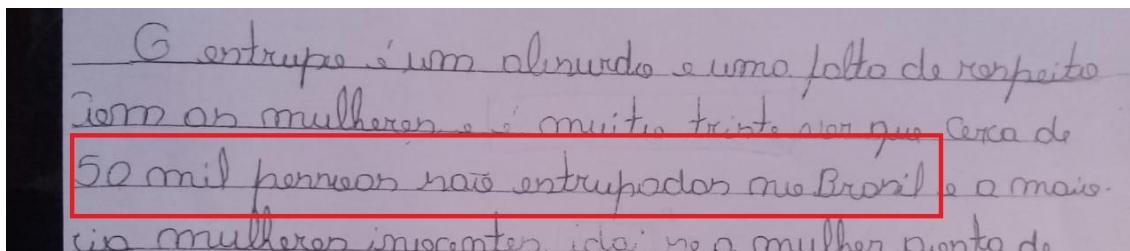 O entrupo é um absurdo e uma falta de respeito
com as mulheres e é muito triste por que cerca de
50 mil pessoas são entrupadas no Brasil e a maio-
ria mulheres inocentes, idai se a mulher